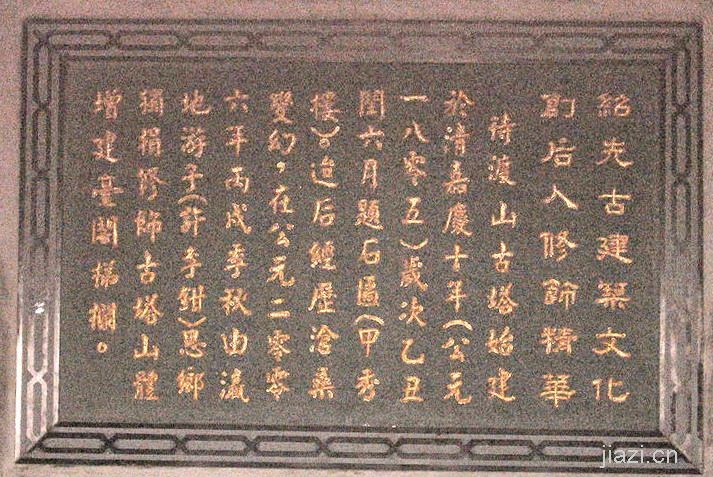 紹先古建築文化
創后人修飾精華
待渡山古塔始建
於清嘉慶十年(公元
一八零五)歲次乙丑
閏六月題石匾(甲秀
樓)。迨后經歷滄桑
變幻，在公元二零零
六年丙戌季秋由瀛
地游子(許孝鉗)恩鄉
獨捐修飾古塔山體
增建臺閣梯欄。
jiazi.cn